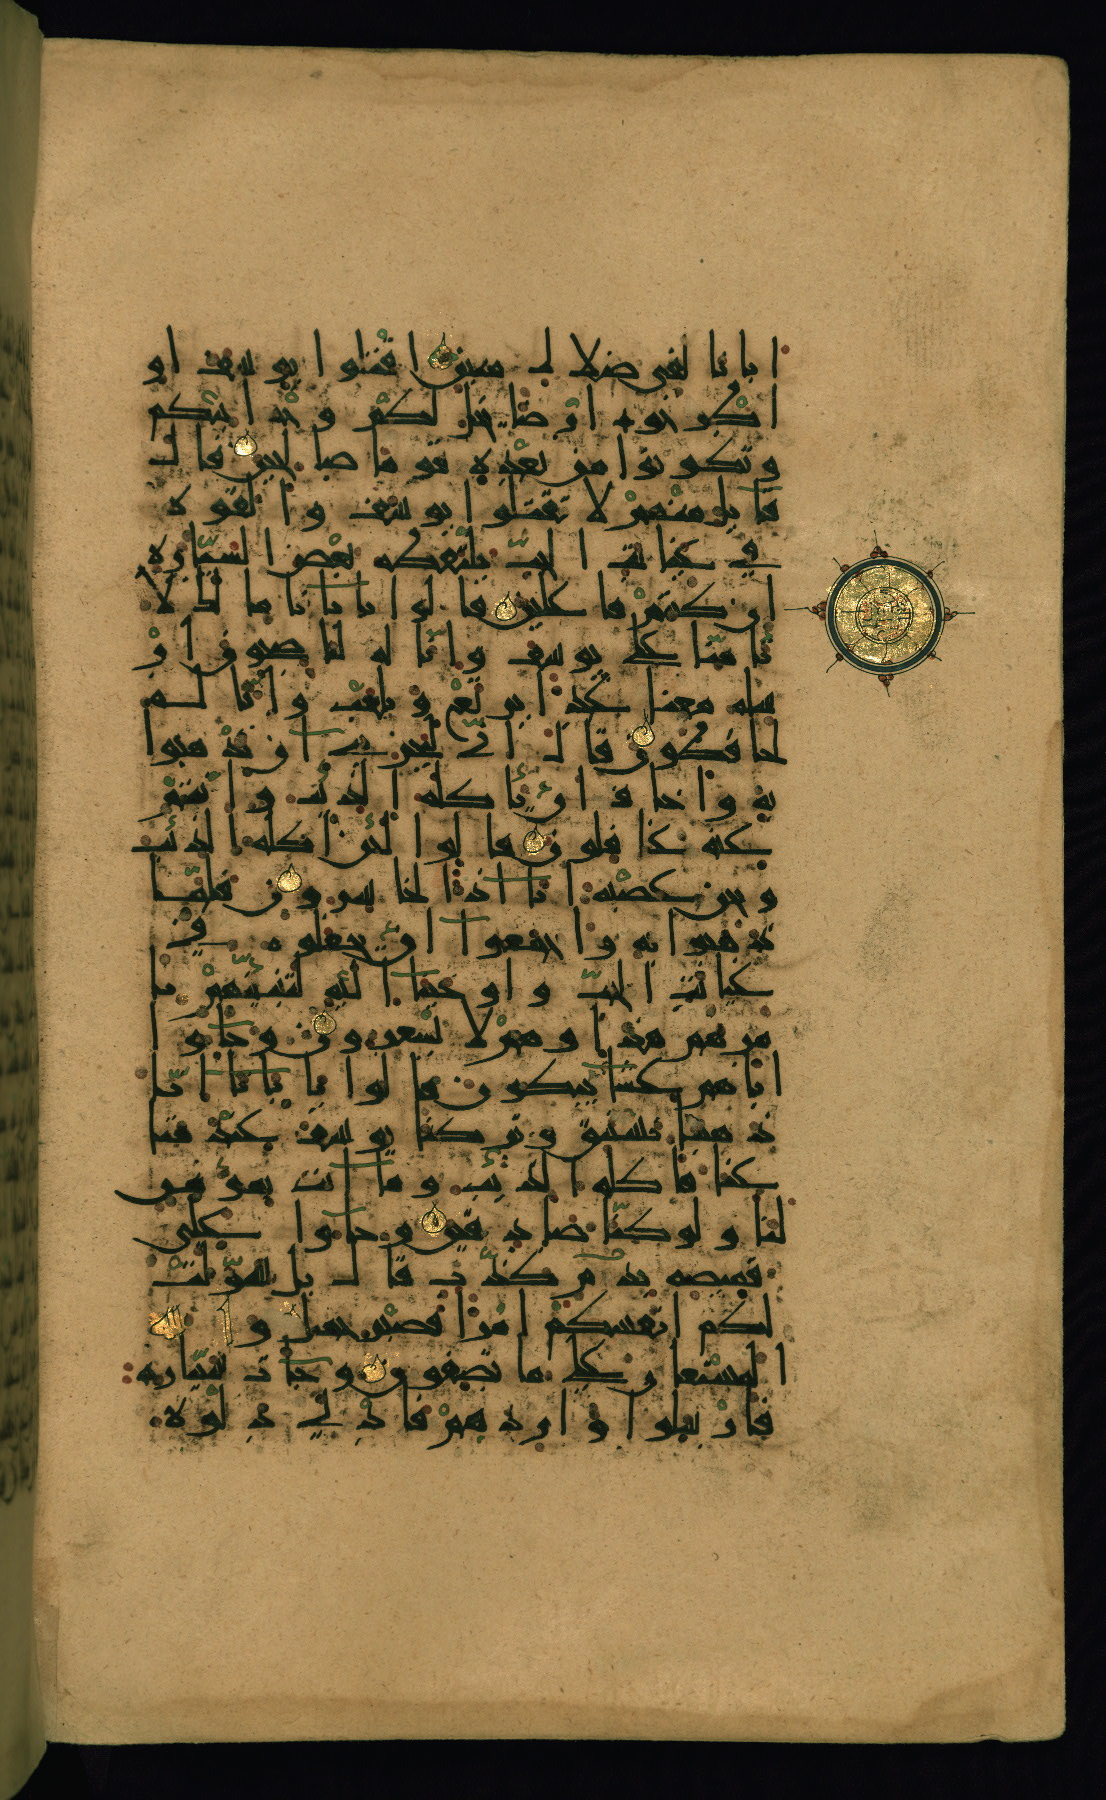 ابانا لفى ضلال مبين اقتلوا يوسف او
اطرحوه ارضا يخل لكم وجه ابيكم
وتكونوا من بعده قوما صالحين قال
قايل منهم لا تقتلوا يوسف والقوه
في غيابت الجب يلتقطه بعض السيارة
ان كنتم فاعلين قالوا يابانا مالك لا
تامنا على يوسف وانا له لناصحون ار
سله معنا غدا يرتع ويلعب وانا له
لحافظون قال اني ليحزنني ان تذهبوا
به واخاف ان ياكله الذئب وانتم
عنه غافلون قالوا لئن اكله الذئب
ونحن عصبة انا اذا لخاسرون فلما
ذهبوا به واجمعوا ان يجعلوه في
غيابت الجب واوحينا اليه لتنبئنهم با
مرهم هذا وهم لا يشعرون وجاوا
اباهم عشا يبكون قالوا يابانا انا
ذهبنا نستبق وتركنا يوسف عند متا
عنا فاكله الذئب وما انت بمومن
لنا ولو كنا صادقين وجاوا على
قميصه بدم كذب قال بل سولت
لكم انفسكم امرا فصبر جميل والله
المستعان على ما تصفون وجات سيارة
فارسلوا واردهم فادلى دلوه